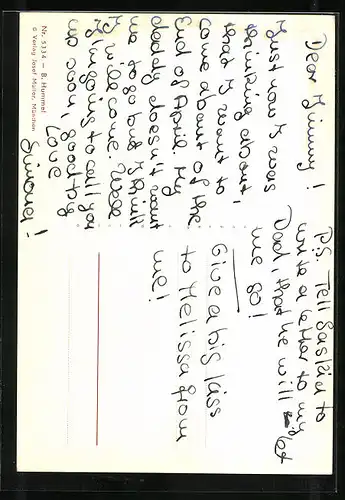 Dear Jimmy!
Just now I was
thinking about,
that I want to
come about of the
End of April. My
daddy doesn't want
me to go but I think
I will come. Well
I'm going to call you
up soon, good by
Love
Simone!
P.S. Tell Gaskia to
write a letter to my
Dad, that he will let
me go!
Give a big kiss
to Melissa from
me!
Nr. 5334 — B. Hummel
© Verlag Josef Müller, München